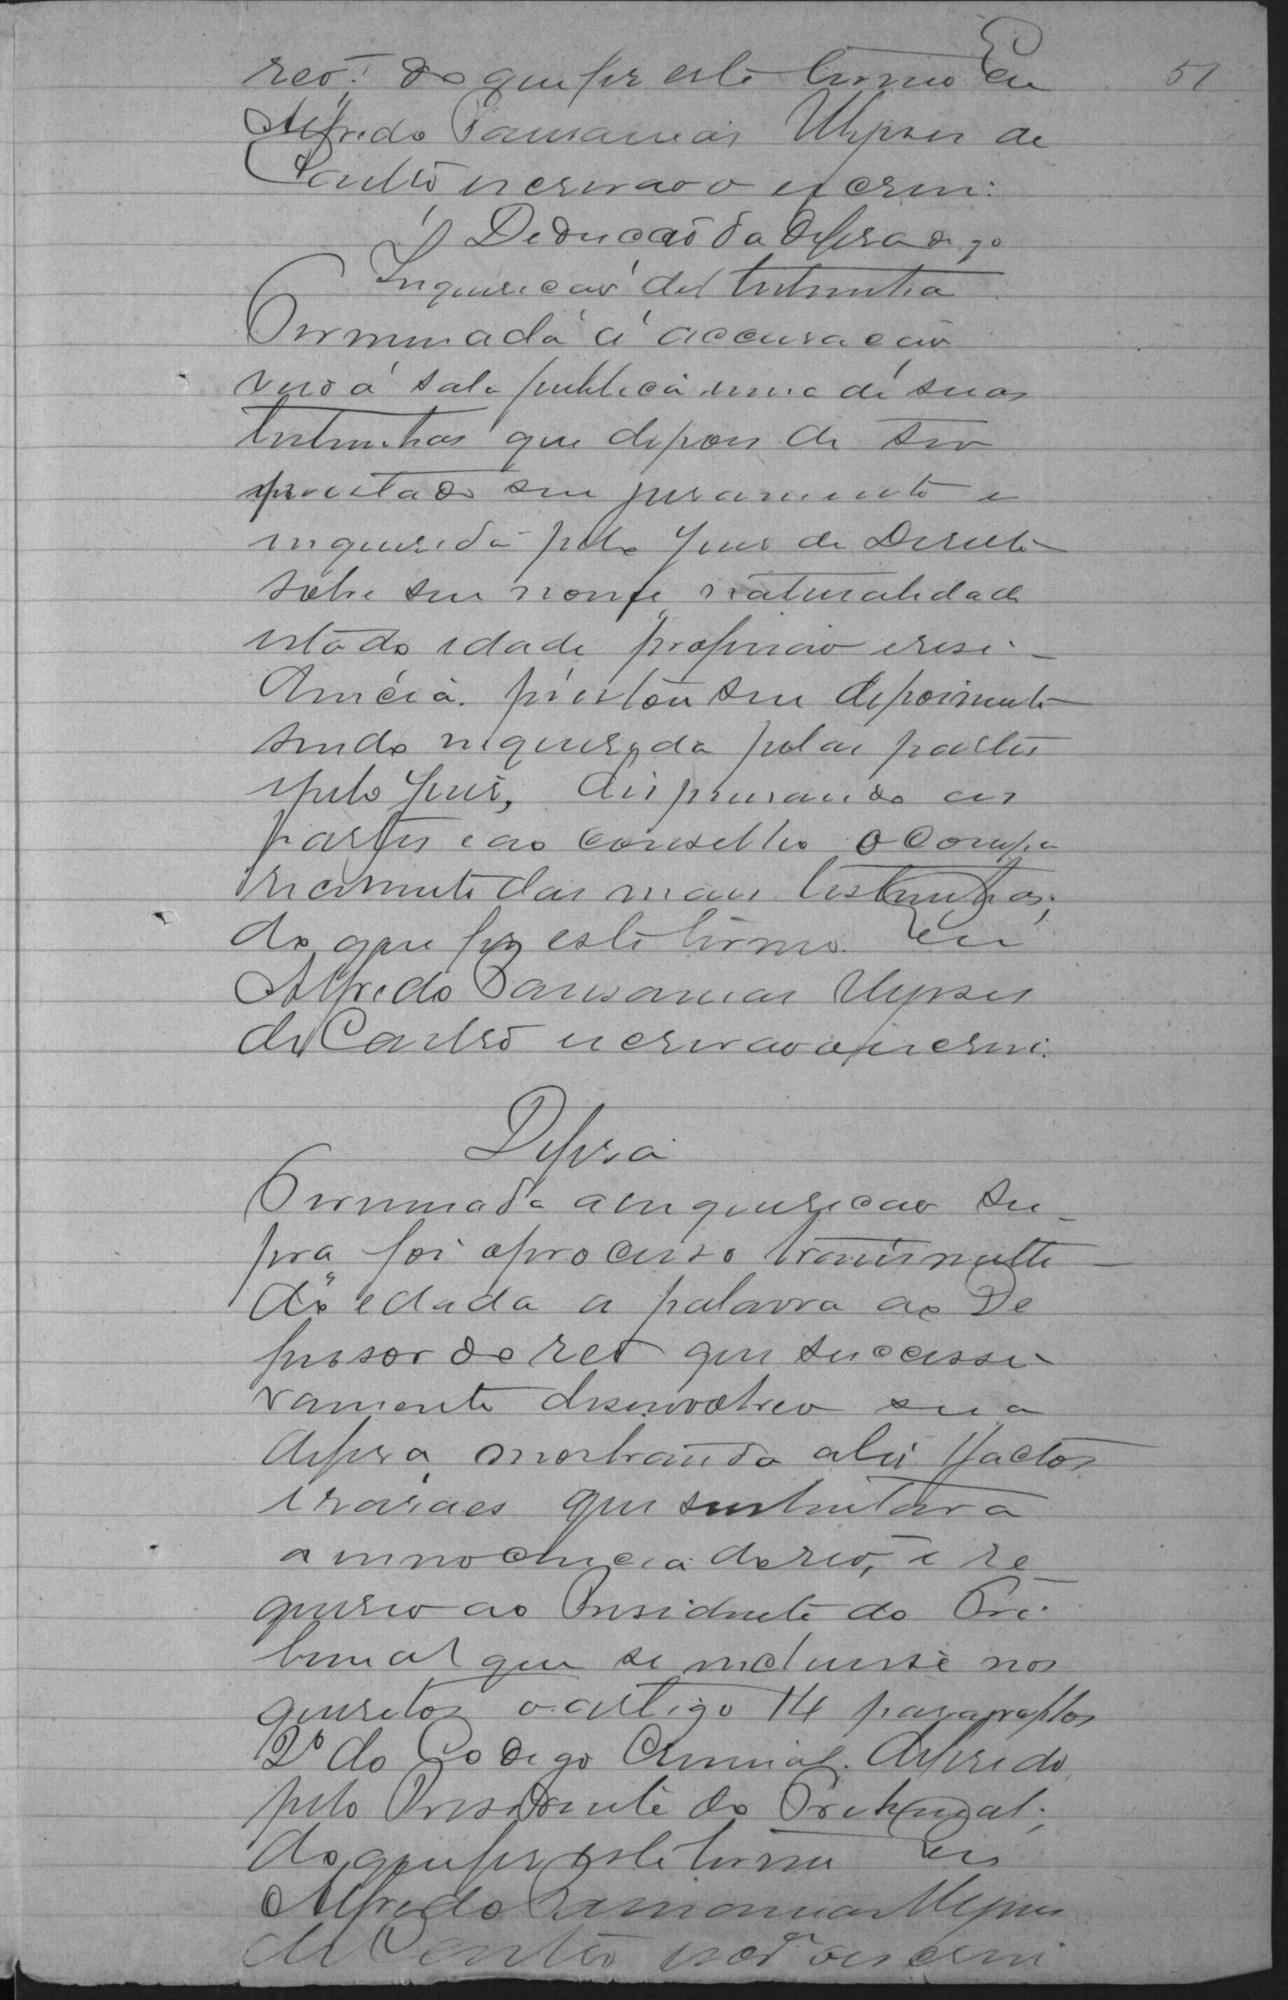 reo; do que fiz este termo Eu
51
Alfredo Pausanias Ulysses de
Castro escrivão o escrevi.
Deducção da Defesa digo
Inquirição de testemunha
Terminada a accusação
veio á sala publica uma de suas
testemunhas que depois de ter
prestado seu juramento e
inquerida pelo Juiz de Direito
sobre seu nome, naturalidade
estado idade profissão e resi-
dencia. prestou seu depoimento
sendo inquerida pelas partes
e pelo Juiz, dispensando as
partes e ao conselho o compa
recimento das mais testemunhas;
do que fiz este termo. Eu
Alfredo Pausanias Ulysses
de Castro escrivão o escrevi.
Defesa
Terminada a inquirição su-
pra foi o processo transmitti-
do e dada a palavra ao De
fensor do reo que successi-
vamente desenvolveo sua
defesa, mostrando a lei, factos
e rasões que sustentava
a innocencia do reo, e re
quereo ao Presidente do Tri-
bunal que se incluisse nos
quesitos o artigo 14 paragraphos
2º do Codigo Criminal. Deferido
pelo Presidente do Tribunal;
do que fiz este termo Eu
Alfredo Pausanias Ulysses
de Castro escrvão o escrevi